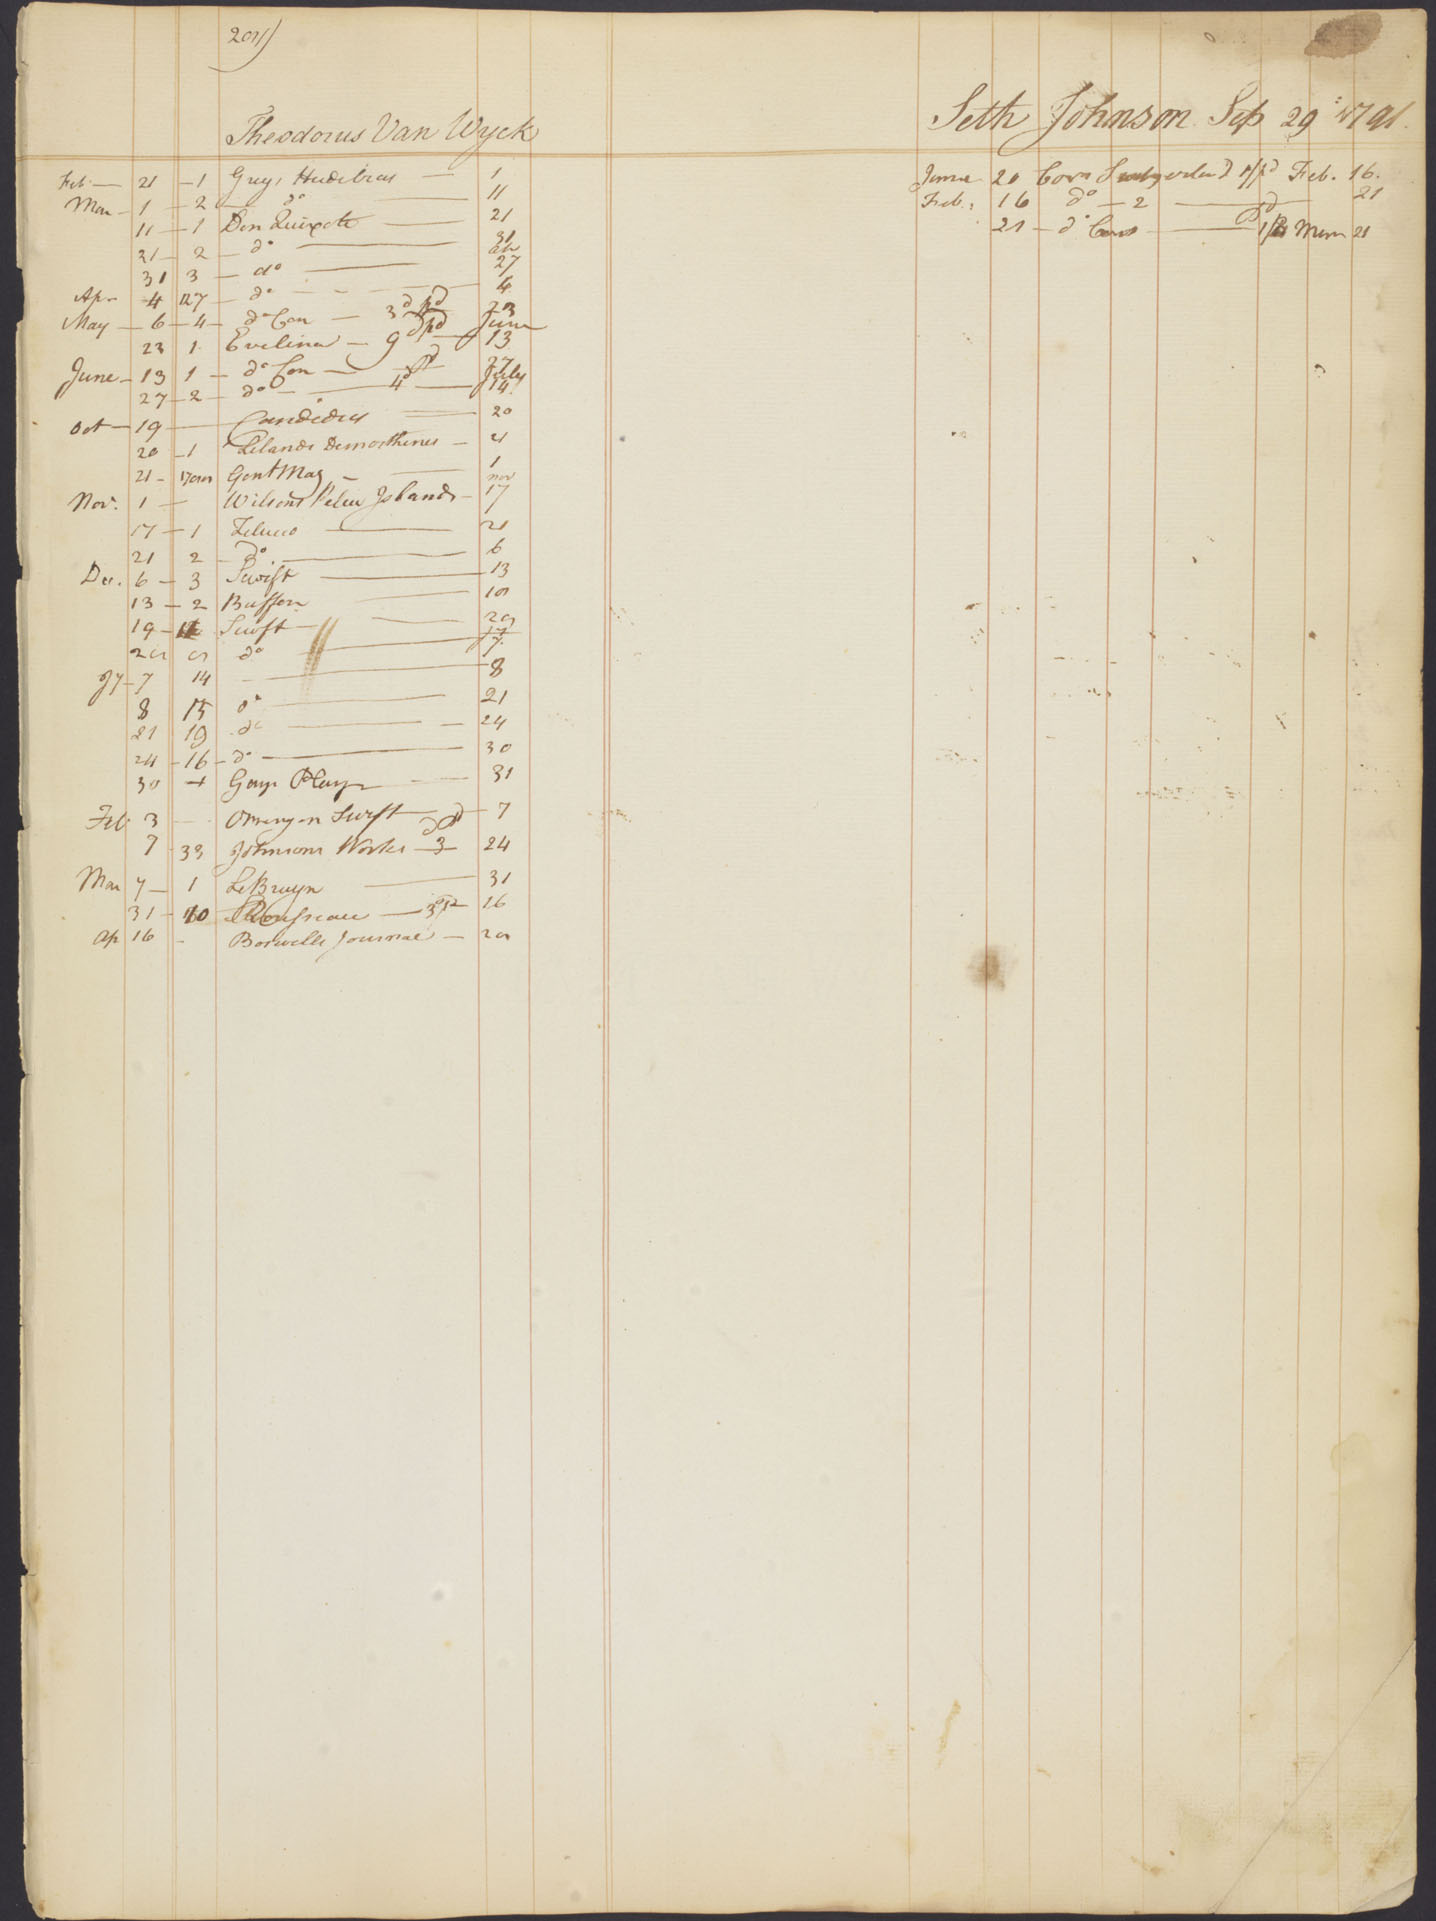 Theodorus Van Wyck
Feb. — 21 — 1 Greys Hudibras — 1
Mar — 1 — 2 — do — 11
11 — 1 Don Quixote — 21
21 — 2 — do — 31
31 3 — do —
Ap — 4 — do — 4
May — 6 — 4 — do Con — 3d pd
23 1 Evelina — 9d pd — 13
June — 13 1 — do Con — pd 27
27 — 2 — do — 4d — 14
Oct — 19 — Candidus — 20
20 — 1 Lelands Demosthenes — 21
21 — Gent Mag — 1 nov
Nov. 1 — Wilsons Pelew Islands — 17
17 — 1 Zeluco — 21
21 2 — do — 6
Dec. 6 — 3 Swift — 13
13 — 2 Buffon
19 — Swift —
do — 7
Jy — 7 14 — 8
8 15 do — 21
21 19 do — 24
24 — 16 — do — 30
30 — 1 Gays Plays — 31
Feb 3 — Swift — pd — 7
7 33 Johnsons Works — 3 — 24
Mar 7 — 1 LeBruyn — 31
31 — 10 Rousseau — 16
Ap 16 - Boswells Journal —
Seth Johnson Sep 29 1791.
20 Coxs pd Feb. 16.
Feb. 16 do — 2 — pd — 21
21 — do Coxs — 21